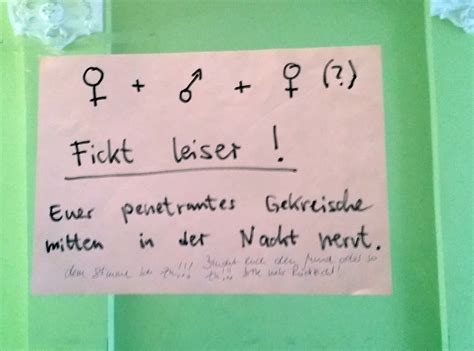 ♀ + ♂ + ♀ (?)
Fickt leiser !
Euer penetrantes Gekreische
mitten in der Nacht nervt.
dem Stimme !!! euch den Mund oder so
!!! bitte mehr Rücksicht!